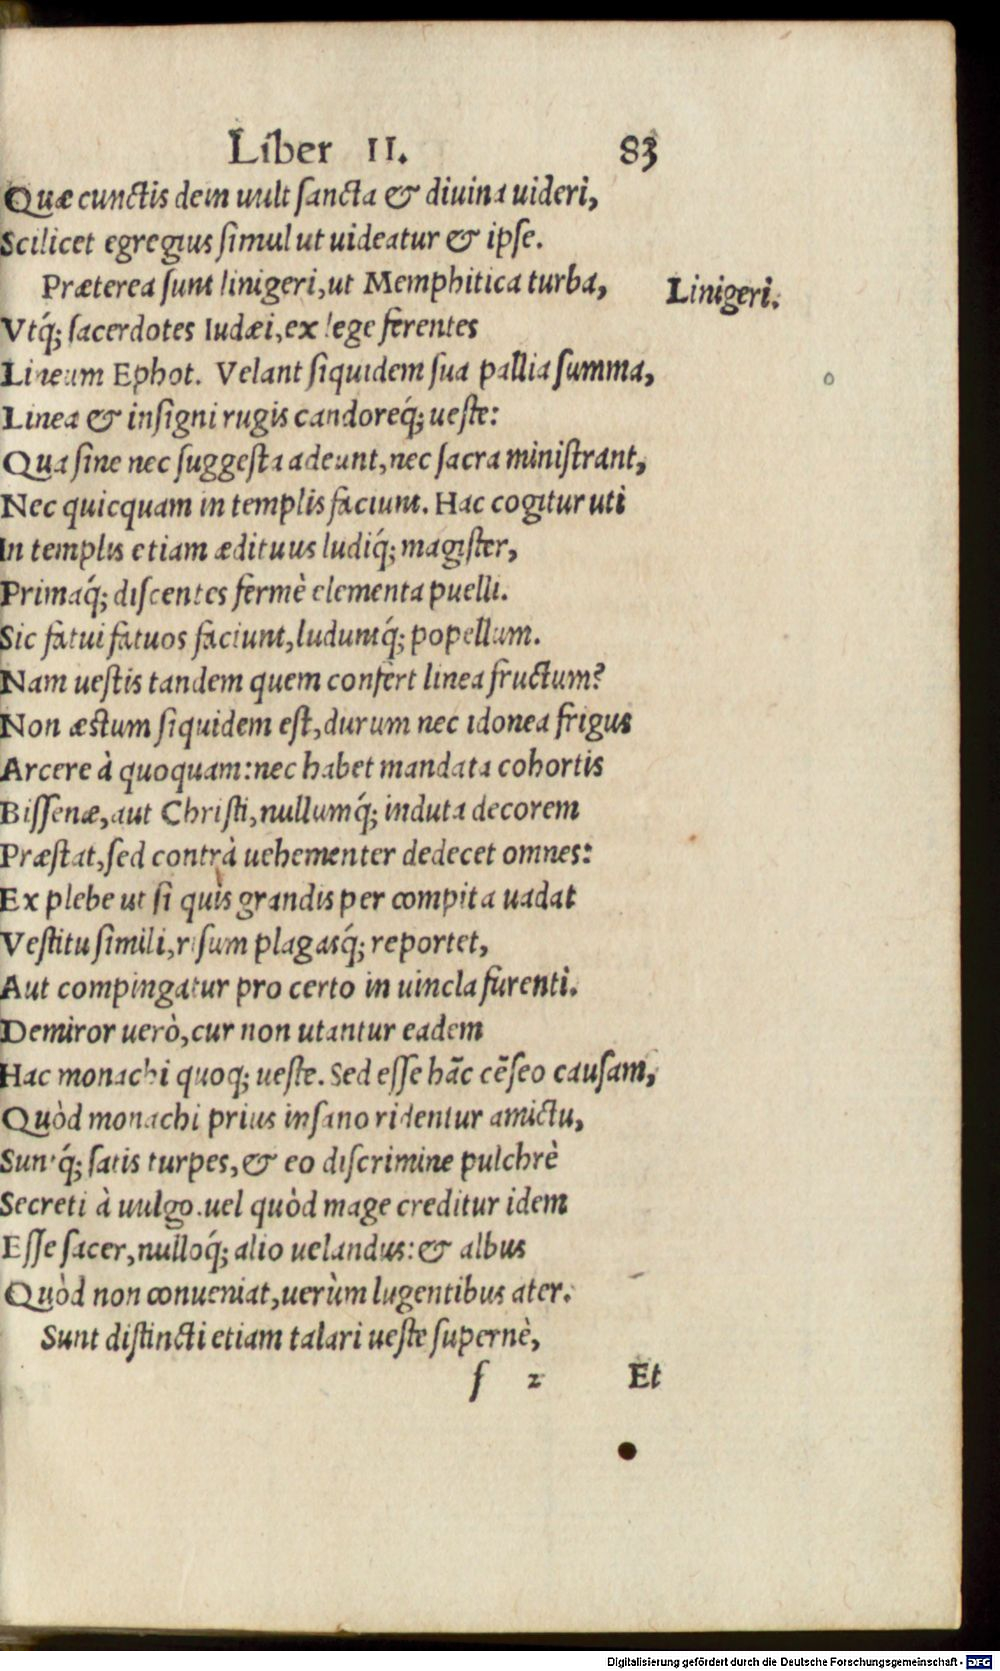 Liber II. 83
Quæ cunctis dem uult sancta & diuina uideri,
Scilicet egregius simul ut uideatur & ipse.
Præterea sunt linigeri, ut Memphitica turba,
Linigeri.
Vtq́; sacerdotes Iudæi, ex lege ferentes
Lineum Ephot. Velant siquidem sua pallia summa,
Linea & insigni rugis candoreq́; ueste:
Qua sine nec suggesta adeunt, nec sacra ministrant,
Nec quicquam in templis faciunt. Hac cogitur uti
In templis etiam ædituus ludiq́; magister,
Primaq́; discentes fermè elementa puelli.
Sic fatui fatuos faciunt, luduntq́; popellum.
Nam uestis tandem quem confert linea fructum?
Non æstum siquidem est, durum nec idonea frigus
Arcere à quoquam: nec habet mandata cohortis
Bissenæ, aut Christi, nullumq́; induta decorem
Præstat, sed contrà uehementer dedecet omnes:
Ex plebe ut si quis grandis per compita uadat
Vestitu simili, risum plagasq́; reportet,
Aut compingatur pro certo in uincla furenti.
Demiror uerò, cur non utantur eadem
Hac monachi quoq; ueste. Sed esse hãc cẽseo causam,
Quòd monachi prius insano ridentur amictu,
Suntq́; satis turpes, & eo discrimine pulchrè
Secreti à uulgo. uel quòd mage creditur idem
Esse sacer, nulloq́; alio uelandus: & albus
Quòd non conueniat, uerùm lugentibus ater.
Sunt distincti etiam talari ueste supernè,
f 2 Et
Digitalisierung gefördert durch die Deutsche Forschungsgemeinschaft - DFG